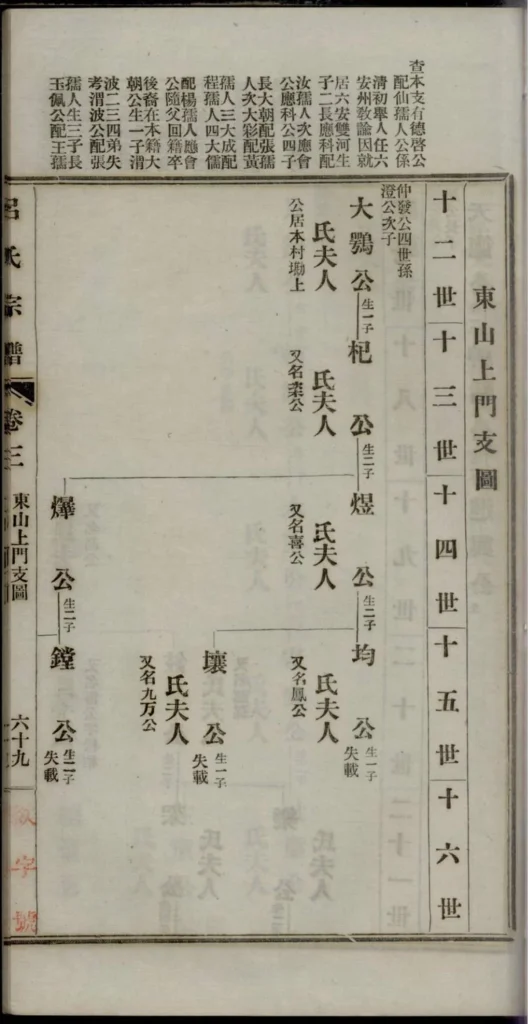 查本支有德啓公
配仙孺人公係
清初舉人任六
安州敎諭因就
居六安雙河生
子二長應科配
汝孺人次應會
公應科公四子
長大朝配張孺
人次大彩配黃
孺人三大成配
程孺人四大儒
配楊孺人應會
公隨父回籍卒
後裔在本籍大
朝公生一子渭
波二三四弟失
考渭波公配張
孺人生三子長
玉佩公配王孺
東山上門支圖
十二世
十三世
十四世
十五世
十六世
仲發公四世孫
澄公次子
大鶚公
生一子
氏夫人
公居本村塲上
杞公
生二子
氏夫人
又名棐公
煜公
生二子
氏夫人
又名喜公
均公
生一子
失載
氏夫人
又名鳳公
壤公
生一子
失載
氏夫人
又名九万公
燁公
生二子
鏜公
生二子
失載
呂氏宗譜
卷三
東山上門支圖
六十九
字號